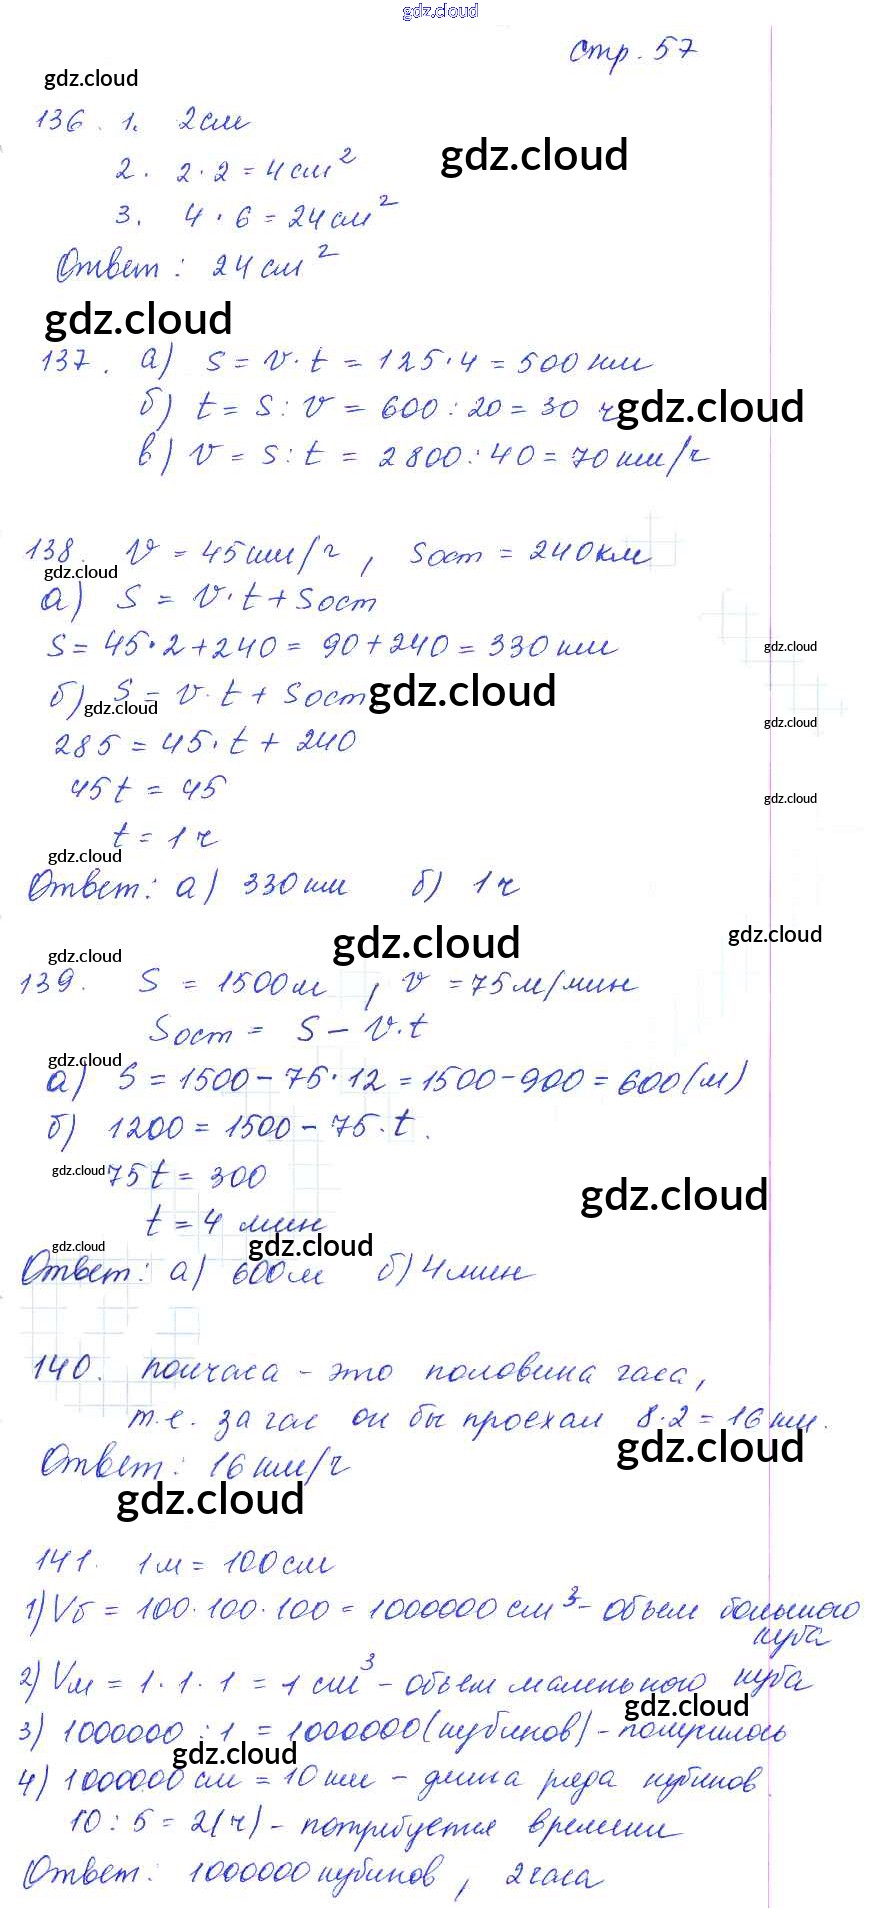 gdz.cloud
стр. 57
gdz.cloud
136. 1. 2см
gdz.cloud
2. 2·2=4см²
3. 4·6=24см²
Ответ: 24см²
gdz.cloud
137. а) s=v·t=125·4=500км
б) t=s:v=600:20=30 ч
gdz.cloud
в) v=s:t=2800:40=70км/ч
138. v=45км/ч, sост=240км
gdz.cloud
а) s=v·t+sост
s=45·2+240=90+240=330км
gdz.cloud
б) s=v·t+sост
gdz.cloud
gdz.cloud
gdz.cloud
285=45·t+240
45t=45
gdz.cloud
t=1ч
gdz.cloud
Ответ: а) 330км б) 1ч
gdz.cloud
gdz.cloud
gdz.cloud
139. S=1500м, v=75м/мин
Sост=S-v·t
gdz.cloud
а) S=1500-75·12=1500-900=600(м)
б) 1200=1500-75·t.
gdz.cloud
75t=300
gdz.cloud
t=4мин
gdz.cloud
gdz.cloud
Ответ: а) 600м б) 4мин
140. полчаса - это половина часа,
т.е. за час он бы проехал 8·2=16км.
gdz.cloud
Ответ: 16км/ч
gdz.cloud
141. 1м=100см
1) Vб=100·100·100=1000000см³- объем большого
куба
2) Vм=1·1·1=1см³- объем маленького куба
gdz.cloud
3) 1000000:1=1000000(кубиков)-получилось
gdz.cloud
4) 1000000см=10км-длина ряда кубиков.
10:5=2(ч)-потребуется времени
Ответ: 1000000кубиков, 2часа